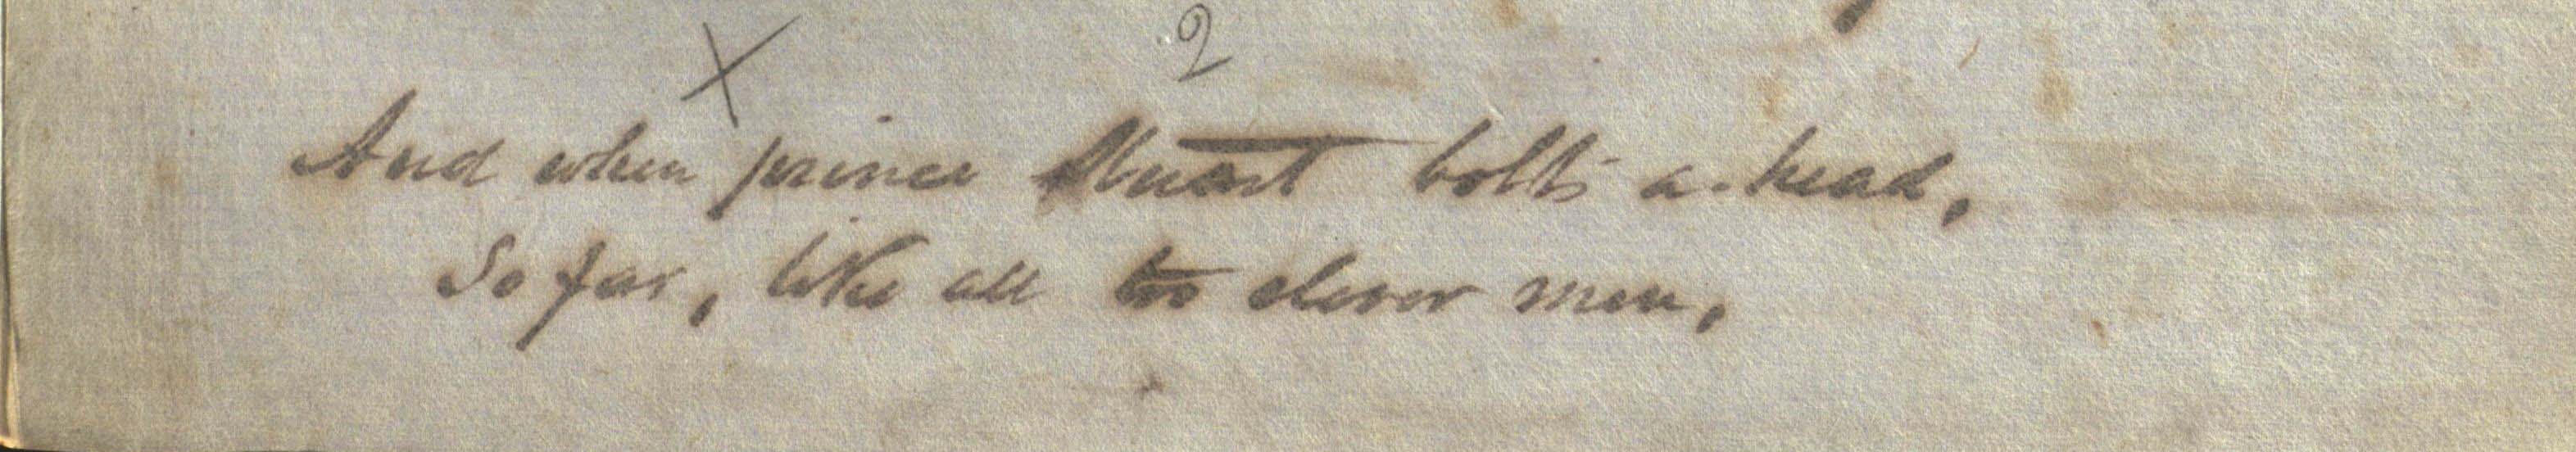 X 2
And when prince Stuart bolts a-head,
So far, like all too clever men,